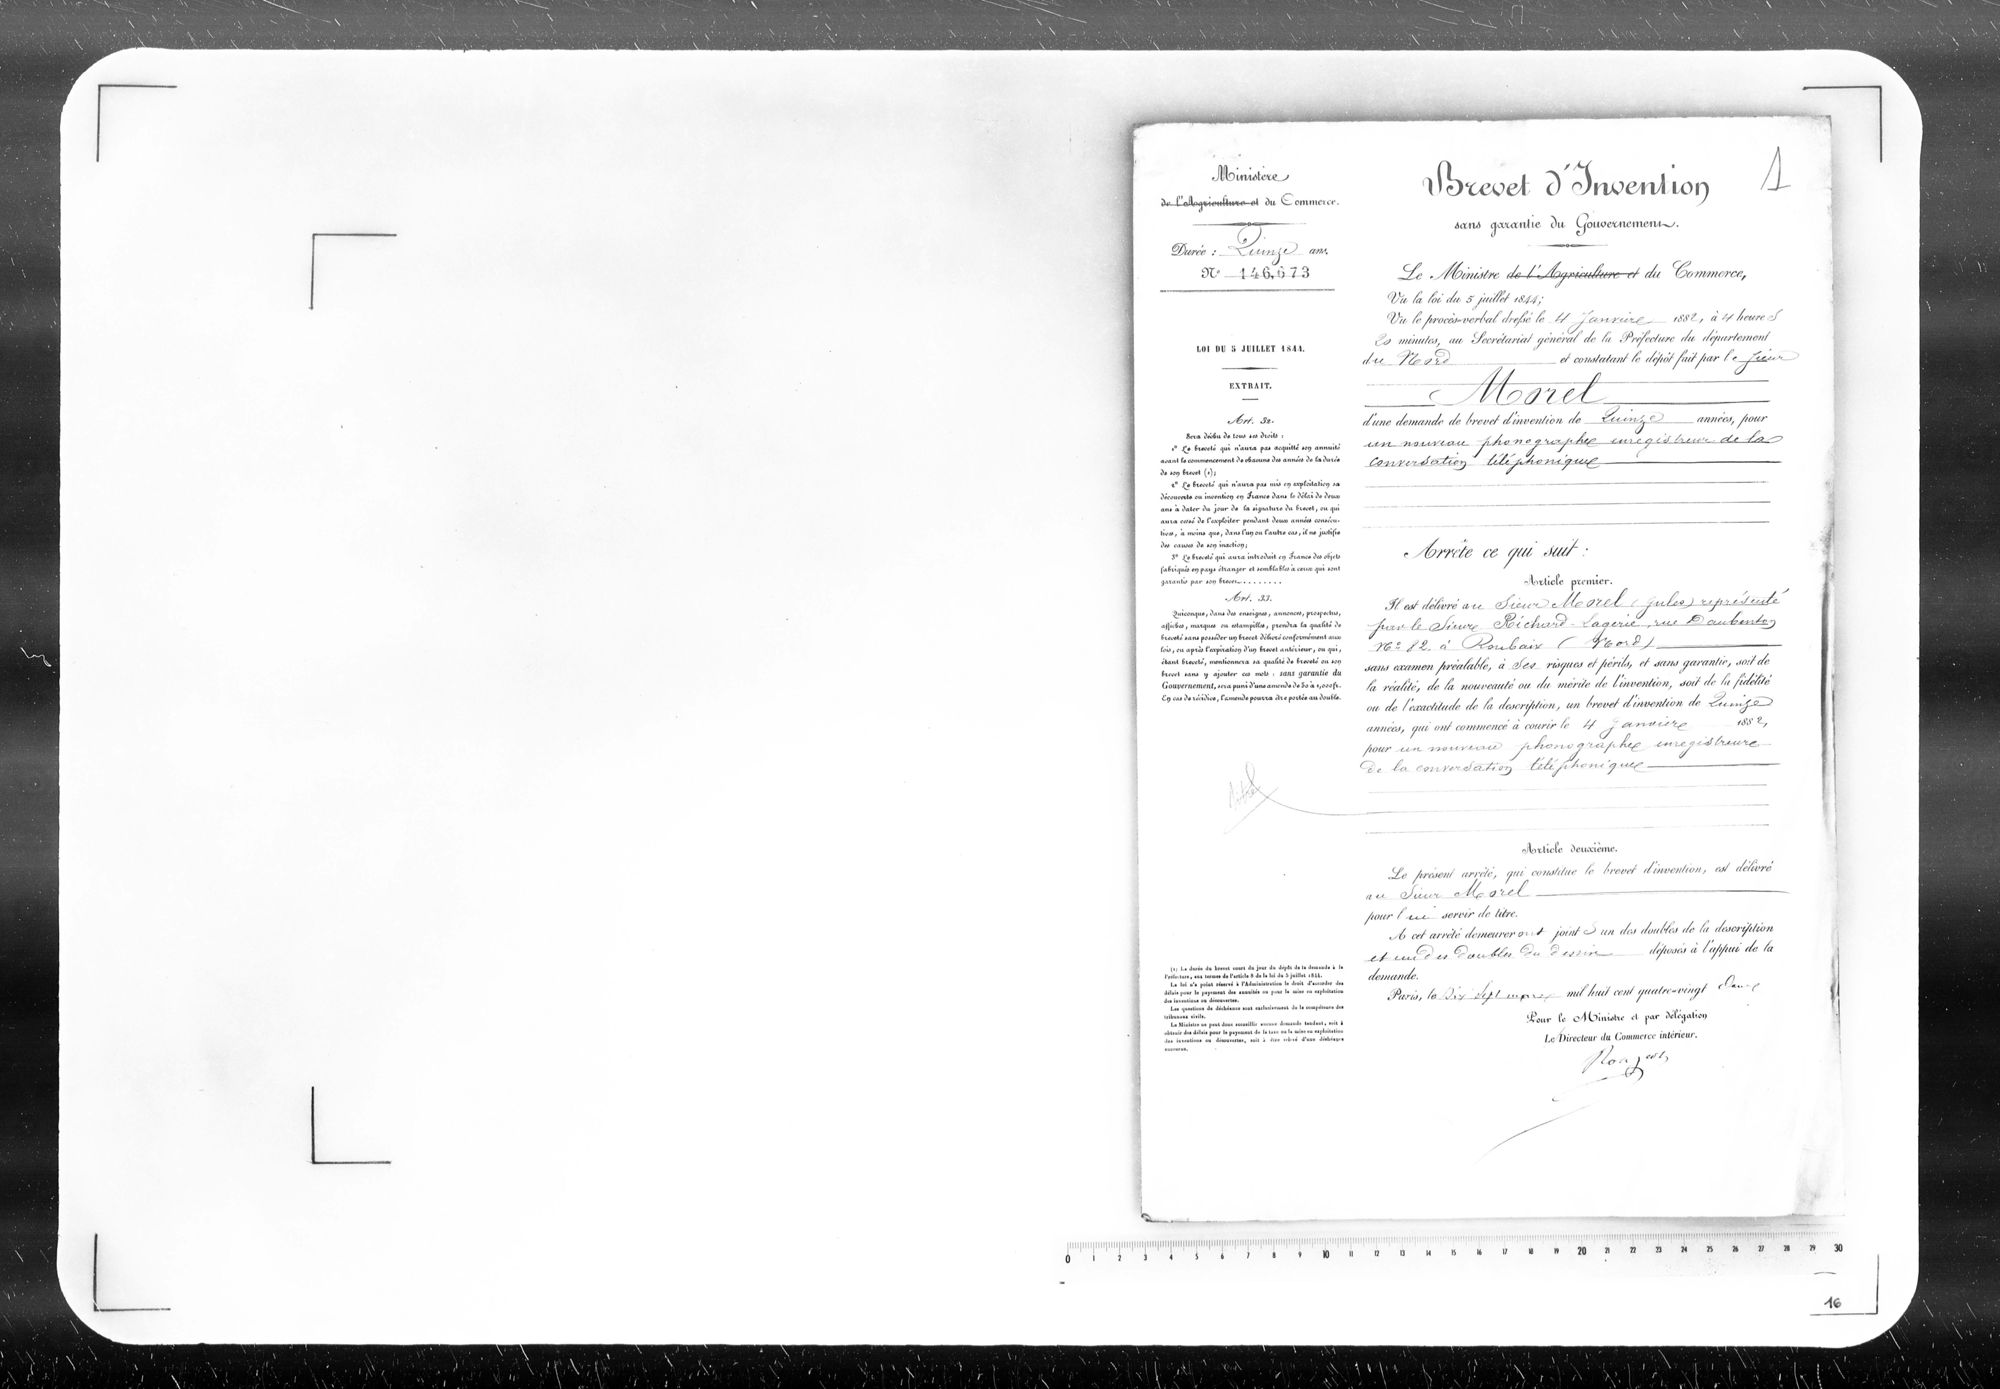 Ministère
de l'Agriculture et du Commerce.
Durée : Quinze ans.
N° 146,673
LOI DU 5 JUILLET 1844.
EXTRAIT.
Art. 32.
Sera déchu de tous ses droits :
1° Le breveté qui n'aura pas acquitté son annuité
avant le commencement de chacune des années de la durée
de son brevet (1);
2° Le breveté qui n'aura pas mis en exploitation sa
découverte ou invention en France dans le délai de deux
ans à dater du jour de la signature du brevet, ou qui
aura cessé de l'exploiter pendant deux années consécu-
tives, à moins que, dans l'un ou l'autre cas, il ne justifie
des causes de son inaction;
3° Le breveté qui aura introduit en France des objets
fabriqués en pays étranger et semblables à ceux qui sont
garantis par son brevet........
Art. 33.
Quiconque, dans des enseignes, annonces, prospectus,
affiches, marques ou estampilles, prendra la qualité de
breveté sans posséder un brevet délivré conformément aux
lois, ou après l'expiration d'un brevet antérieur, ou qui,
étant breveté, mentionnera sa qualité de breveté ou son
brevet sans y ajouter ces mots : sans garantie du
Gouvernement, sera puni d'une amende de 50 à 1,000 fr.
En cas de récidive, l'amende pourra être portée au double.
(1) La durée du brevet court du jour du dépôt de la demande à la
Préfecture, aux termes de l'article 8 de la loi du 5 juillet 1844.
La loi n'a point réservé à l'Administration le droit d'accorder des
délais pour le payement des annuités ou pour la mise en exploitation
des inventions ou découvertes.
Les questions de déchéance sont exclusivement de la compétence des
tribunaux civils.
Le Ministre ne peut donc accueillir aucune demande tendant, soit à
obtenir des délais pour le payement de la taxe ou la mise en exploitation
des inventions ou découvertes, soit à être relevé d'une déchéance
encourue.
1
Brevet d'Invention
sans garantie du Gouvernement.
Le Ministre de l'Agriculture et du Commerce,
Vu la loi du 5 juillet 1844;
Vu le procès-verbal dressé le 4 Janvier 1882, à 4 heures
20 minutes, au Secrétariat général de la Préfecture du département
du Nord et constatant le dépôt fait par le Sieur
Morel
d'une demande de brevet d'invention de Quinze années, pour
un nouveau phonographe enregistreur de la
conversation téléphonique
Arrête ce qui suit :
Article premier.
Il est délivré au Sieur Morel (Jules) représenté
par le Sieur Richard-Lagerie, rue Daubenton
N° 82 à Roubaix (Nord)
sans examen préalable, à ses risques et périls, et sans garantie, soit de
la réalité, de la nouveauté ou du mérite de l'invention, soit de la fidélité
ou de l'exactitude de la description, un brevet d'invention de Quinze
années, qui ont commencé à courir le 4 Janvier 1882,
pour un nouveau phonographe enregistreur
de la conversation téléphonique
Article deuxième.
Le présent arrêté, qui constitue le brevet d'invention, est délivré
au Sieur Morel
pour lui servir de titre.
A cet arrêté demeureront joints un des doubles de la description
et un des doubles du dessin déposés à l'appui de la
demande.
Paris, le Dix Septembre mil huit cent quatre-vingt deux
Pour le Ministre et par délégation
Le Directeur du Commerce intérieur.
0 1 2 3 4 5 6 7 8 9 10 11 12 13 14 15 16 17 18 19 20 21 22 23 24 25 26 27 28 29 30
16